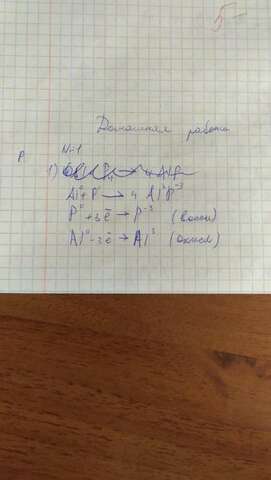 5-
Домашняя работа
N=1
1)
Al⁰ + P⁰ → 4 Al³P⁻³
P⁰ + 3ē → P⁻³ (восст)
Al⁰ - 3ē → Al³ (окисл)